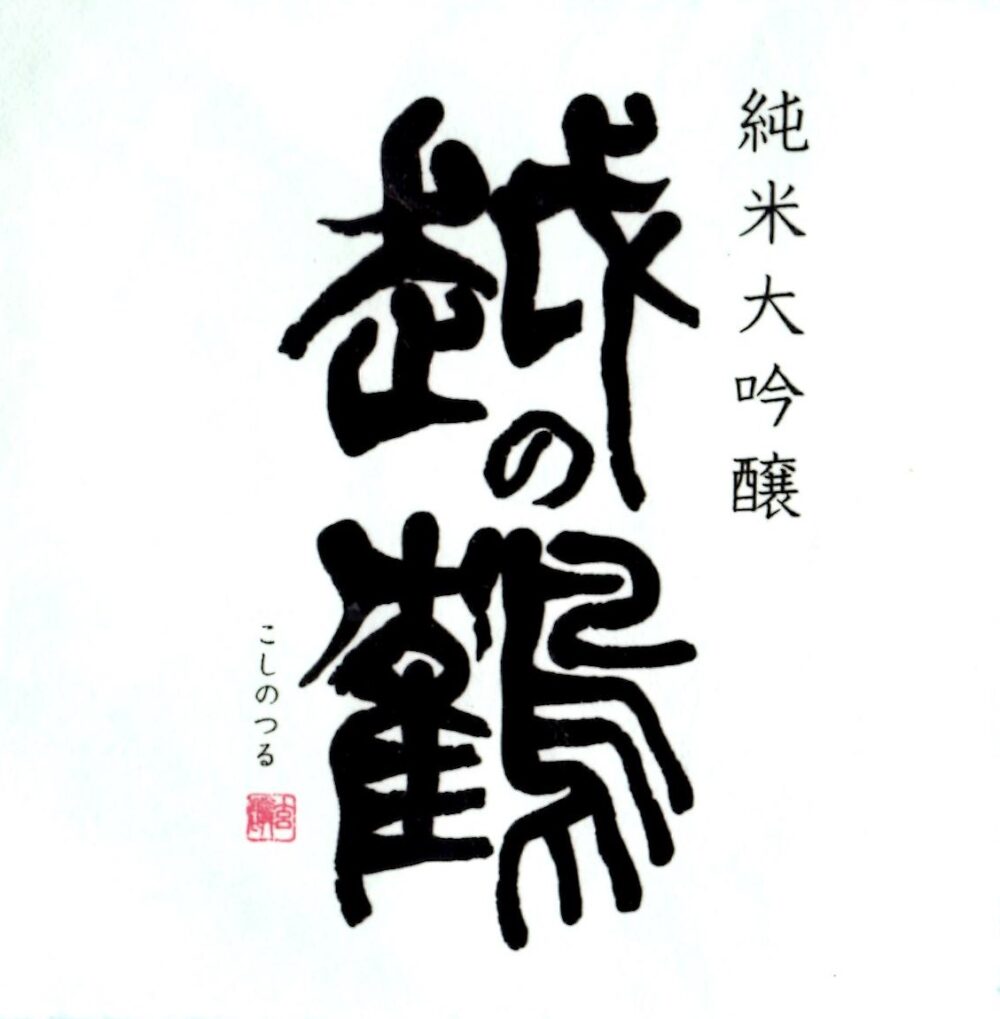 純米大吟醸
越の鶴
こしのつる